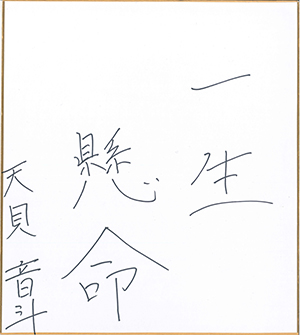 一生
懸命
天貝音斗